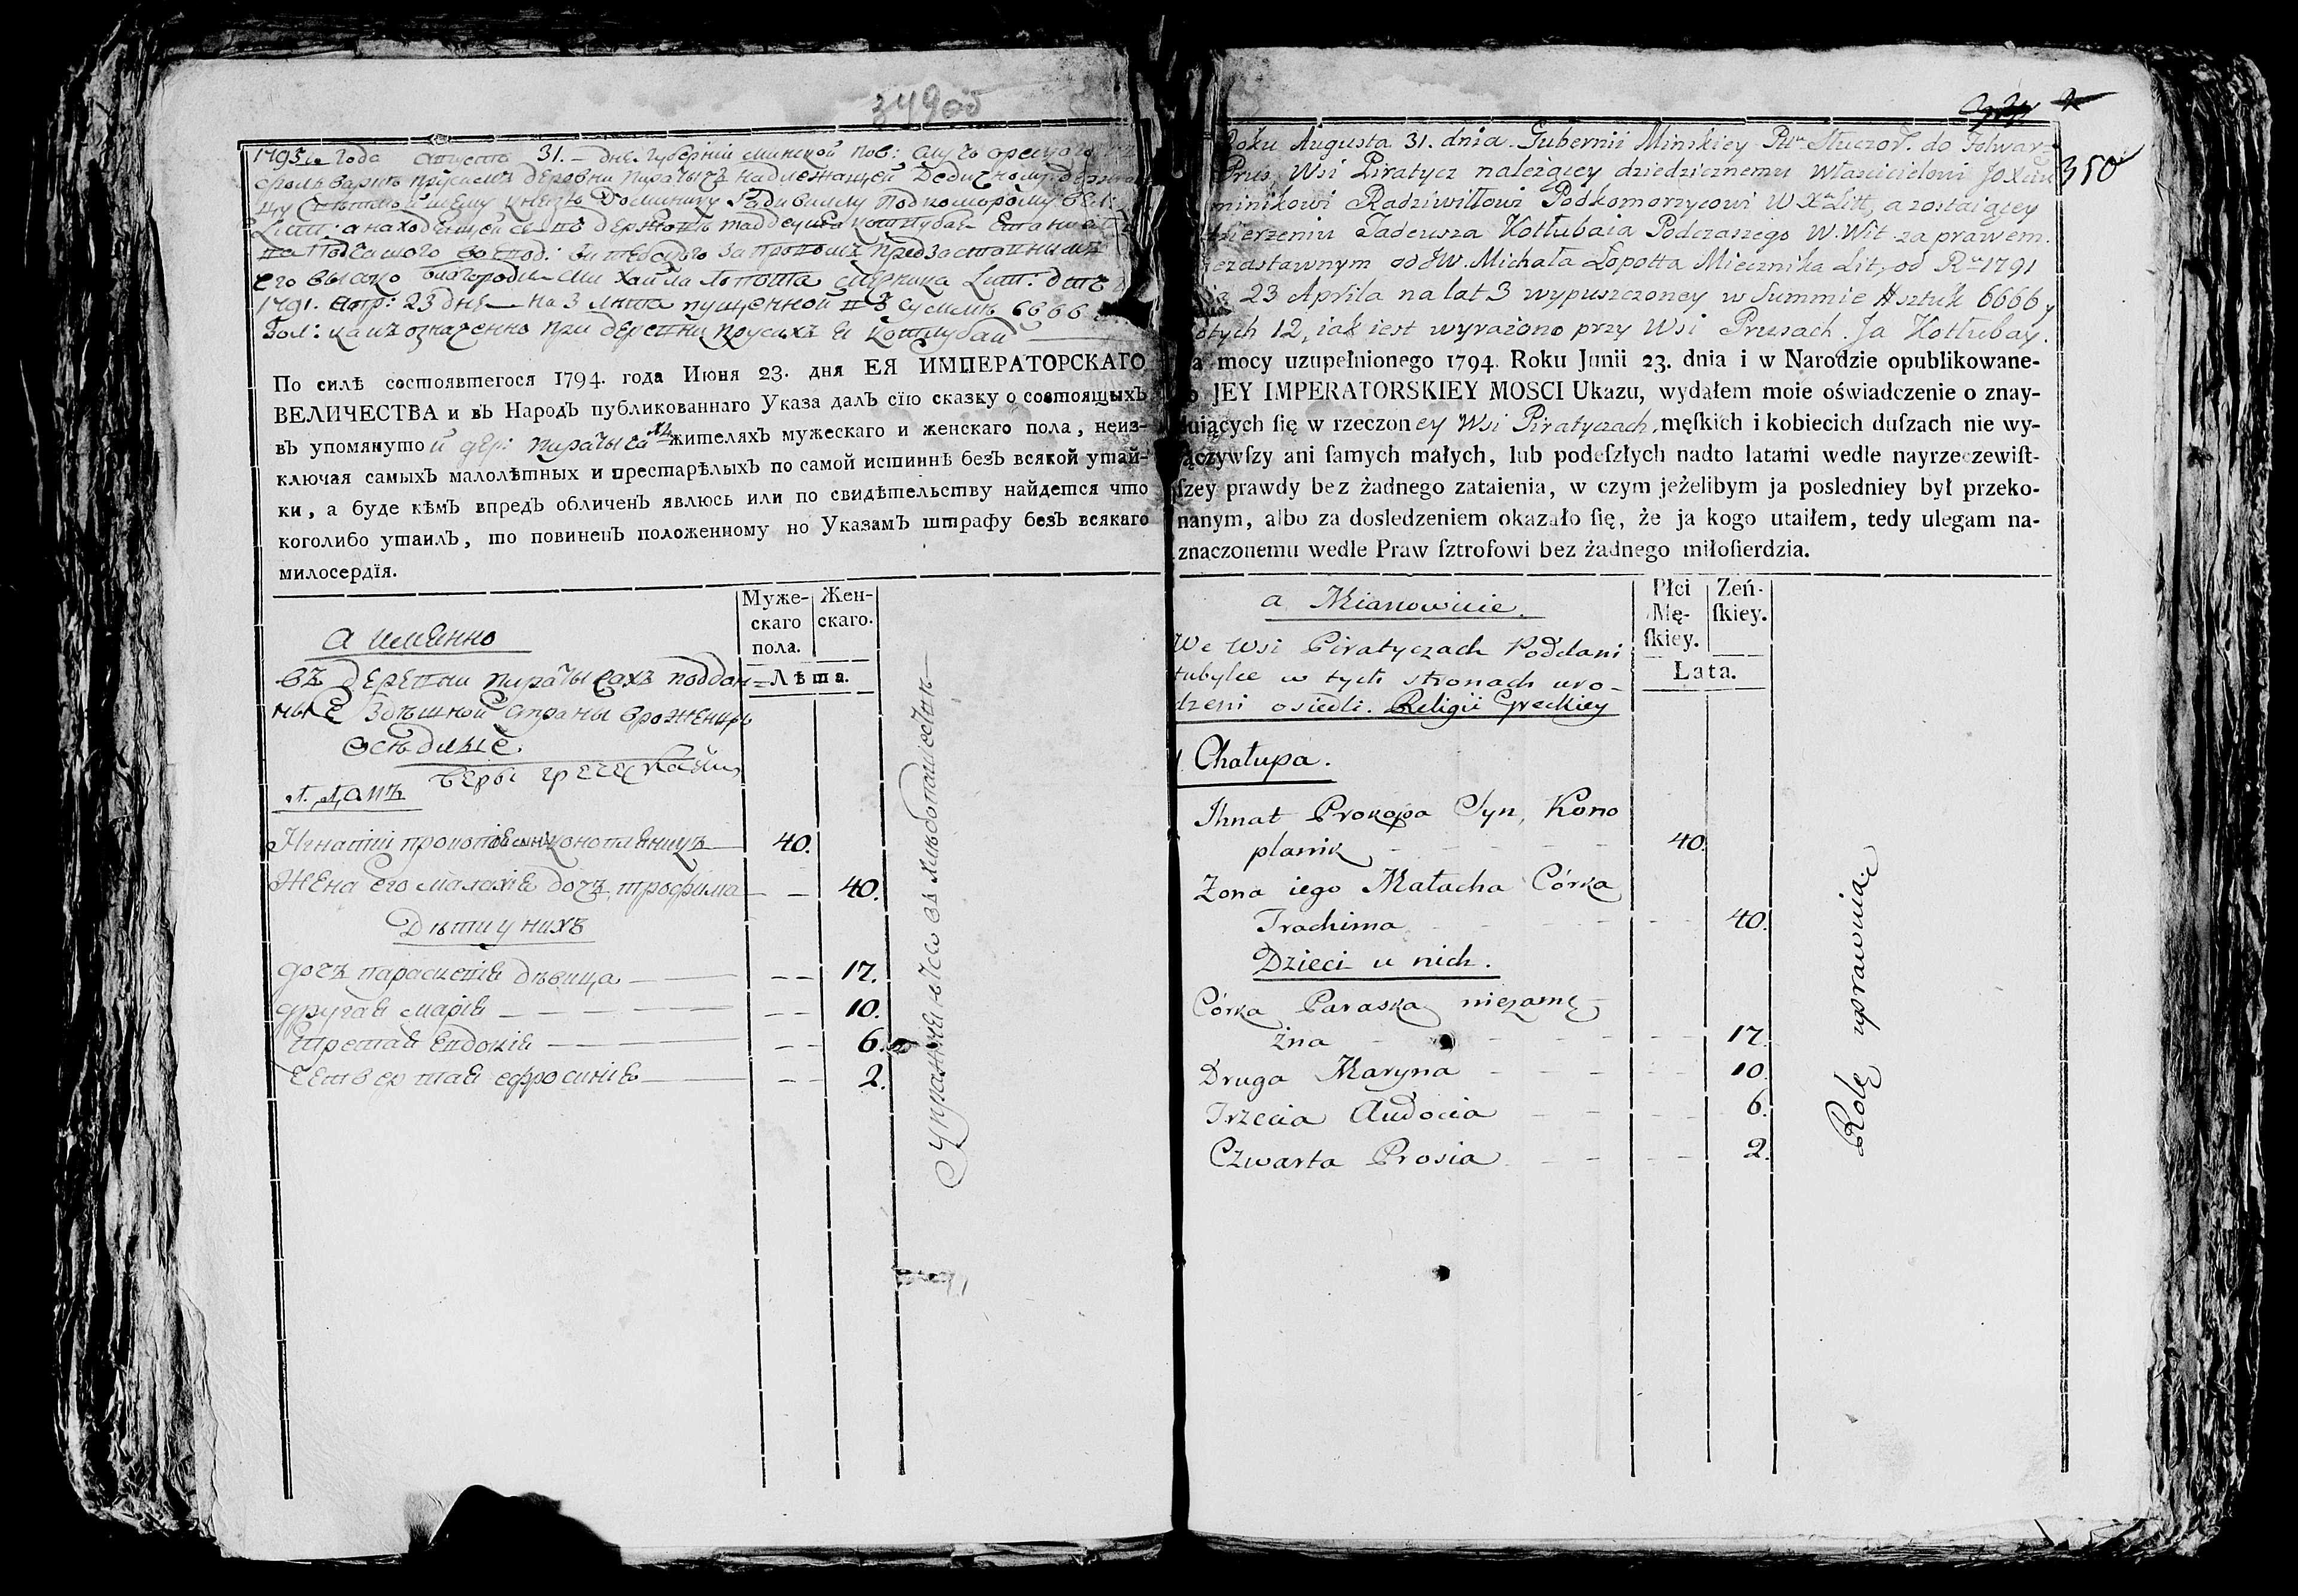 349об
1795го года Августа 31. дня Губерніи Минской пов: Случорецкого
фольварку Прусамъ деревни Пиратычъ надлежащей Дедичному
Князю Доминику Радивиллу Подкоморому
находящейся въ держаніи Таддеуша Котлубая
Подчашого Воевод: Витебского за правомъ предзаставнымъ
его высоко благородія Михайла Лопотта Мечника Лит: отъ
1791. Апр: 23 дня на 3 лѣта пущенной въ суммѣ 6666
зол: какъ означенно при деревни Прусахъ я Котлубай
По силѣ состоявшегося 1794. года Июня 23. дня ЕЯ ИМПЕРАТОРСКАГО
ВЕЛИЧЕСТВА и въ Народъ публикованнаго Указа далъ сїю сказку о состоящыхъ
въ упомянутой дер: Пиратычахъ жителяхъ мужескаго и женскаго пола, неиз-
ключая самыхъ малолѣтных и престарѣлыхъ по самой истиннѣ безъ всякой утай-
ки, а буде кѣмъ впредъ обличенъ явлюсь или по свидѣтельству найдется что
коголибо утаилъ, то повиненъ положенному по Указамъ штрафу безъ всякаго
милосердїя.
Муже-
скаго
пола.
Жен-
скаго.
Лѣта.
А имянно
въ деревни Пиратычахъ поддан-
ные здѣшной страны вроженцы
осѣдлые
вѣры греческой
1. Домъ
Игнатій прокопія сынъ конопляникъ 40.
Жена его Малахія дочь трофима — — 40.
Дѣти у нихъ
дочь параскевія дѣвица — — 17.
другая Марія — — 10.
третая Евдокія — — 6.
четвертая ефросинія — — 2.
Упражняются въ хлѣбопашествѣ
350
Roku Augusta 31. dnia. Gubernii Minskiey Ptu Słuczor. do Folwar-
Prus, Wsi Piratycz należącey dziedzicznemu Właścicielowi JoXciu
minikowi Radziwiłłowi Podkomorzycowi W Xa Litt, a zostaiącey
dzierzeniu Tadeusza Kotłubaia Podczaszego W. Wit. za prawem
zedstawnym od JW. Michała Łopotta Miecznika Lit, od Ru 1791
nia 23 Aprila na lat 3 wypuszczoney w Summie # sztuk 6666 y
otych 12, iak iest wyrażono przy Wsi Prusach. Ja Kotłubay.
a mocy uzupełnionego 1794. Roku Junii 23. dnia i w Narodzie opublikowane-
o JEY IMPERATORSKIEY MOSCI Ukazu, wydałem moie oświadczenie o znay-
duiących ſię w rzeczoney Wsi Piratyczach, męſkich i kobiecich duſzach nie wy-
ączywſzy ani ſamych małych, lub podeſzłych nadto latami wedle nayrzeczewiſt-
ſzey prawdy bez żadnego zataienia, w czym jeżelibym ja posledniey był przeko-
nanym, albo za dosledzeniem okazało ſię, że ja kogo utaiłem, tedy ulegam na-
znaczonemu wedle Praw ſztrofowi bez żadnego miłoſierdzia.
Płci
Mę-
ſkiey.
Żeń-
ſkiey.
Lata.
a Mianowicie.
We Wsi Piratyczach Poddani
tubylce w tych stronach uro-
dzeni osiedli. Religii Greckiey
1. Chałupa.
Ihnat Prokopa Syn, Kono
plannik 40.
Zona iego Małacha Córka
Trachima 40.
Dzieci u nich.
Córka Paraska niezamę-
żna 17.
Druga Maryna 10.
Trzecia Audocia 6.
Czwarta Prosia 2.
Rolę uprawnia.